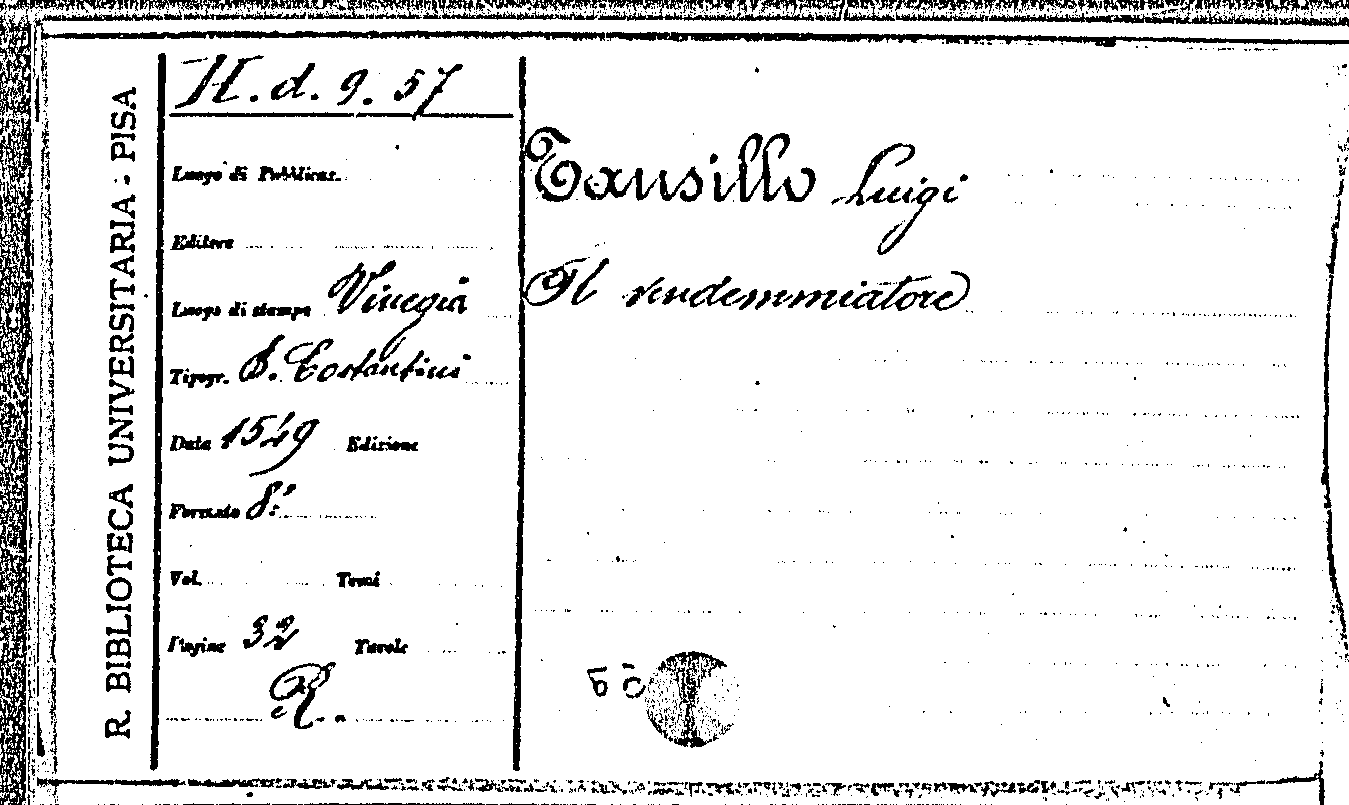 R. BIBLIOTECA UNIVERSITARIA - PISA
H. d. 9. 57
Luogo di Pubblicaz.
Editore
Luogo di stampa Vinegia
Tipogr. B. Costantini
Data 1549 Edizione
Formato 8.°
Vol. Tomi
Pagine 32 Tavole
R..
Tansillo Luigi
Il vendemmiatore